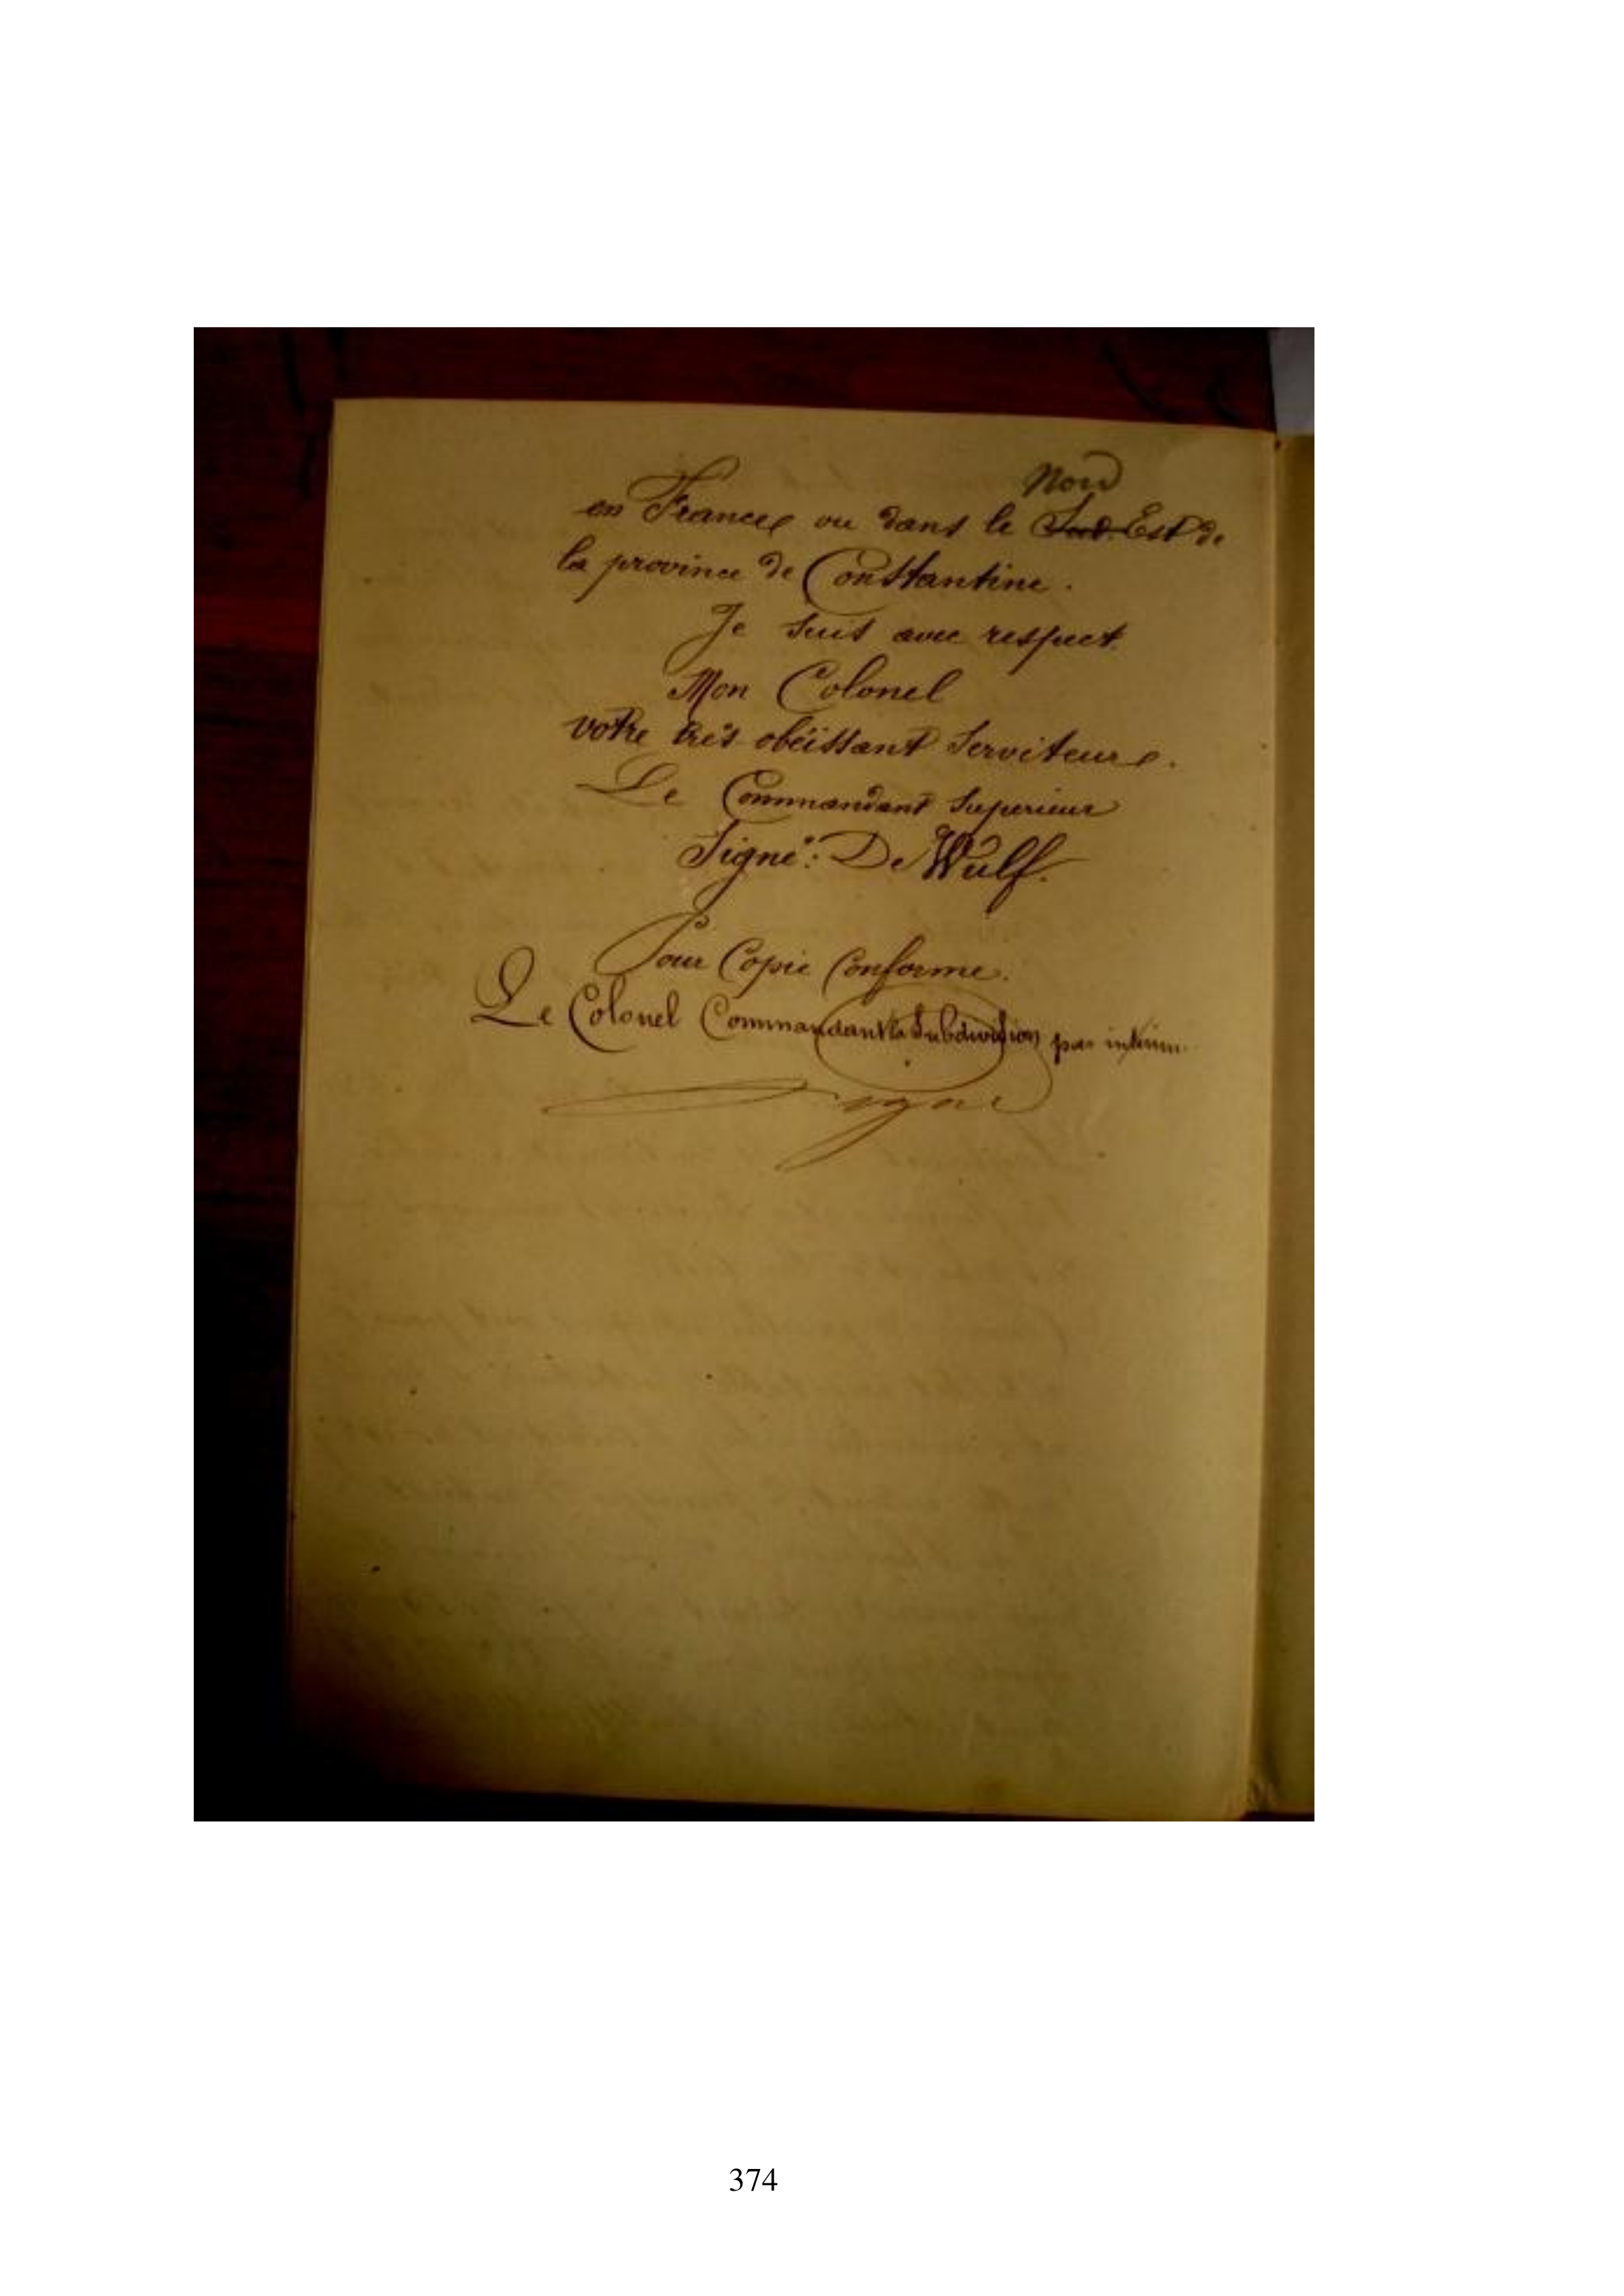 Nord
en France ou dans le Sud-Est de
la province de Constantine.
Je suis avec respect
Mon Colonel
votre très obéissant Serviteur.
Le Commandant Supérieur
Signé: De Wulf.
Pour Copie Conforme.
Le Colonel Commandant la Subdivision par intérim
374